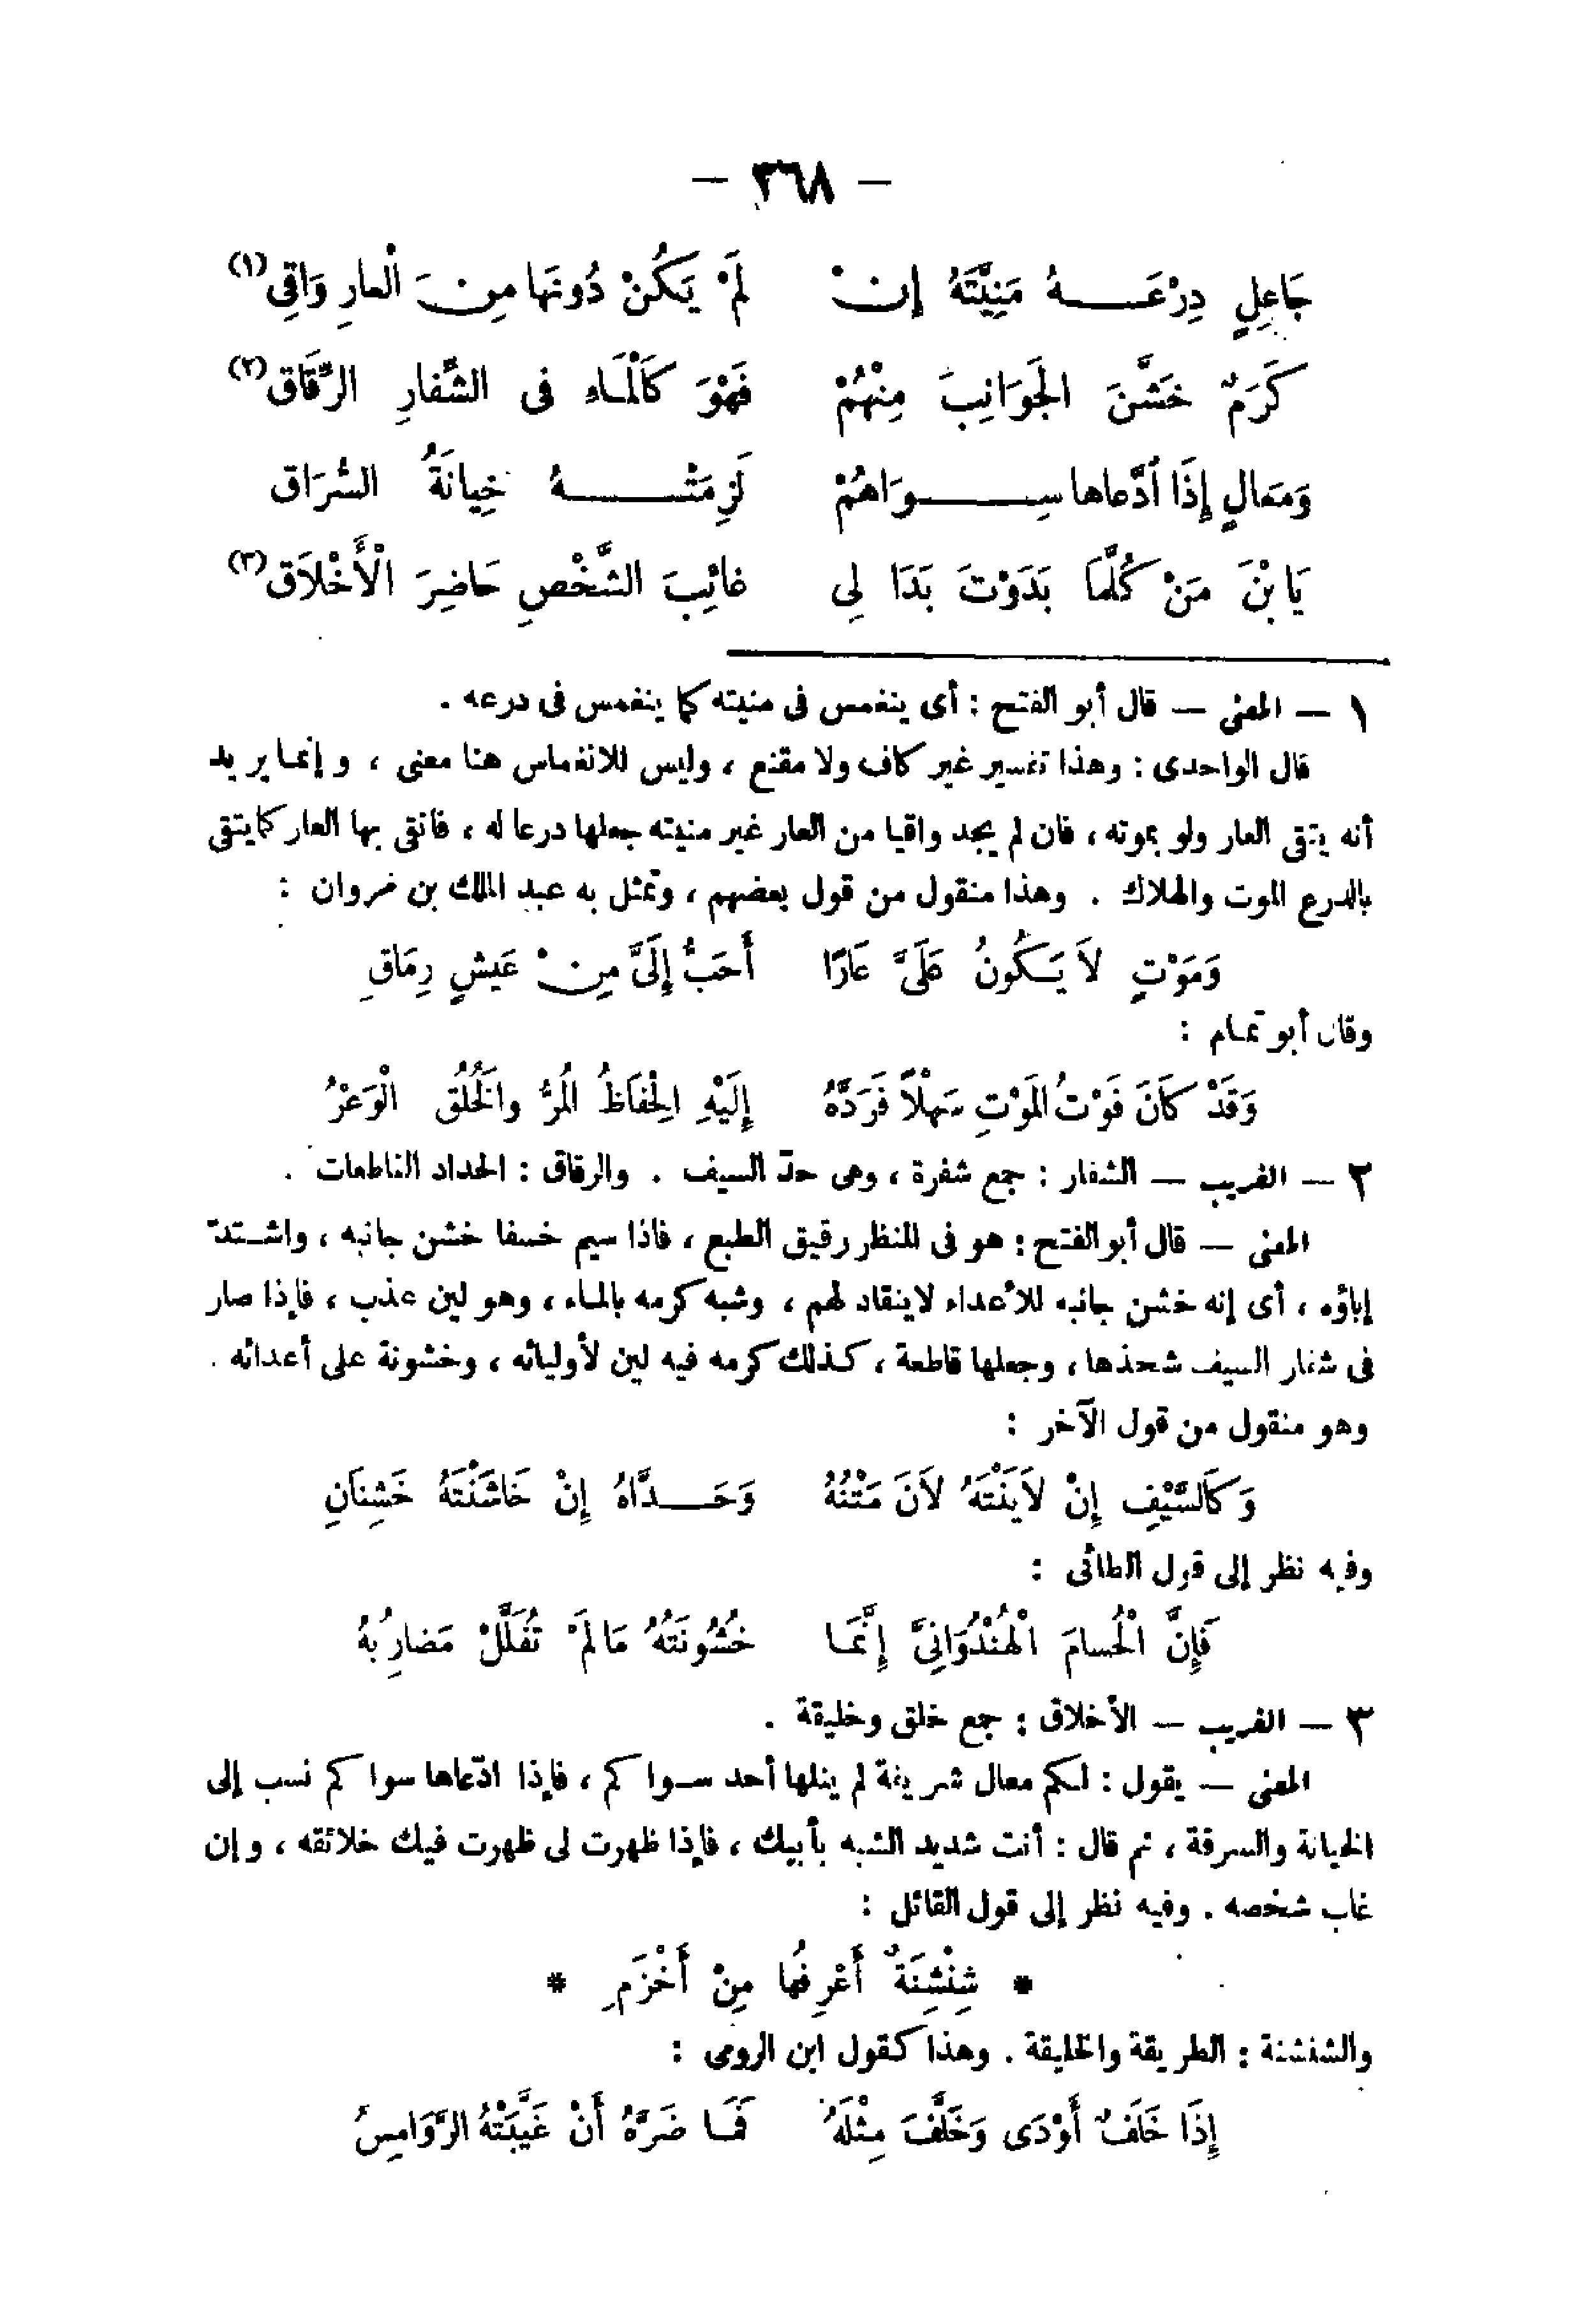 — ٣٦٨ —
جَاعِلٍ دِرْعَهُ مَنِيَّتَهُ إِنْ لَمْ يَكُنْ دُونَهَا مِنَ الْعارِ وَاقِى (١)
كَرَمٌ خَشَّنَ الجَوَانِبَ مِنْهُمْ فَهْوَ كَالْمَاءِ فى الشَّفارِ الرِّقَاقِ (٢)
وَمَعَالٍ إِذَا اُدَّعاها سِوَاهُمْ لَزِمَتْهُ خِيانَةُ السُّرَاقِ
يَا بْنَ مَنْ كُلَّمَا بَدَوْتَ بَدَا لِى غائِبَ الشَّخْصِ حَاضِرَ الْأَخْلَاقِ (٣)
١ — المعنى — قال أبو الفتح : أى ينغمس فى منيته كما ينغمس فى درعه .
قال الواحدى : وهذا تفسير غير كاف ولا مقنع ، وليس للانغماس هنا معنى ، وإنما يريد
أنه يتقى العار ولو بموته ، فان لم يجد واقيا من العار غير منيته جعلها درعا له ، فاتقى بها العار كما يتقى
بالدرع الموت والهلاك . وهذا منقول من قول بعضهم ، وتمثل به عبد الملك بن مروان :
وَمَوْتٍ لاَ يَكُونُ عَلَىَّ عَارًا أَحَبُّ إِلَىَّ مِنْ عَيشٍ رِمَاقِ
وقال أبو تمام :
وَقَدْ كَانَ فَوْتُ المَوْتِ سَهْلًا فَرَدَّهُ إِلَيْهِ الْحِفَاظُ المُرُّ والْخُلُقُ الْوَعْرُ
٢ — الغريب — الشفار : جمع شفرة ، وهى حدّ السيف . والرقاق : الحداد القاطعات .
المعنى — قال أبو الفتح : هو فى المنظر رقيق الطبع ، فاذا سيم خسفا خشن جانبه ، واشتدّ
إباؤه ، أى إنه خشن جانبه للأعداء لا ينقاد لهم ، وشبه كرمه بالماء ، وهو لين عذب ، فإذا صار
فى شفار السيف شحذها ، وجعلها قاطعة ، كذلك كرمه فيه لين لأوليائه ، وخشونة على أعدائه .
وهو منقول من قول الآخر :
وَكَالسَّيْفِ إِنْ لاَيَنْتَهُ لاَنَ مَتْنُهُ وَحَدَّاهُ إِنْ خَاشَنْتَهُ خَشِنَانِ
وفيه نظر إلى قول الطائى :
فَإِنَّ الْحُسامَ الْهُنْدُوَانِىَّ إِنَّمَا خُشُونَتُهُ مَا لَمْ تُفَلَّلْ مَضارِبُهُ
٣ — الغريب — الأخلاق : جمع خلق وخليقة .
المعنى — يقول : لكم معال شريفة لم ينلها أحد سواكم ، فإذا ادّعاها سواكم نسب إلى
الخيانة والسرقة ، ثم قال : أنت شديد الشبه بأبيك ، فإذا ظهرت لى ظهرت فيك خلائقه ، وإن
غاب شخصه . وفيه نظر إلى قول القائل :
* شِنْشِنَةٌ أَعْرِفُها مِنْ أَخْزَمِ *
والشنشنة : الطريقة والخليقة . وهذا كقول ابن الرومى :
إِذَا خَلَفٌ أَوْدَى وَخَلَّفَ مِثْلَهُ فَمَا ضَرَّهُ أَنْ غَيَّبَتْهُ الرَّوَامِسُ